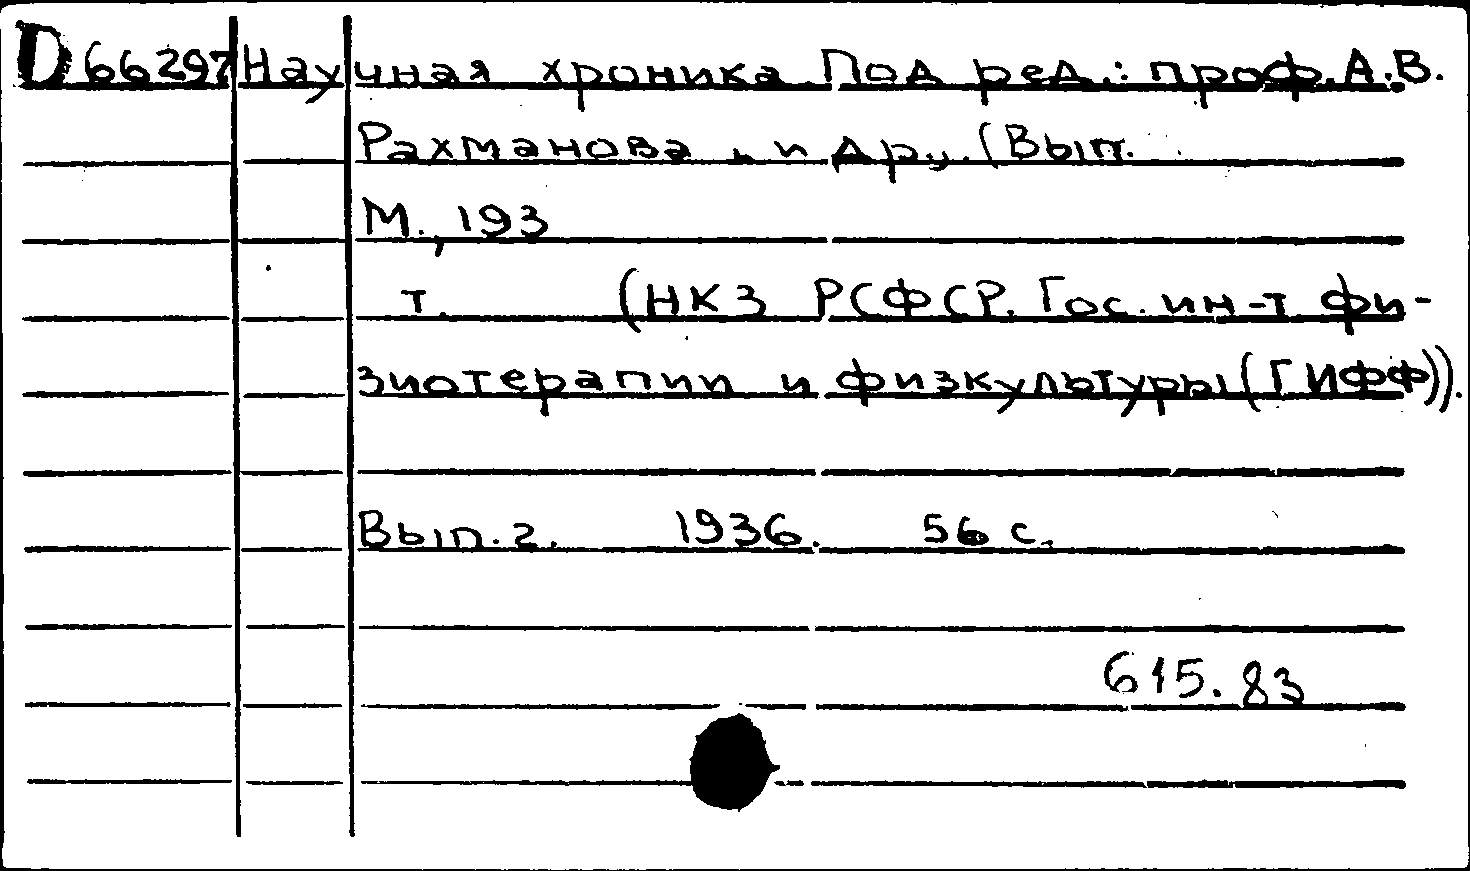 D 66297 Научная хроника. Под ред.: проф. А. В.
Рахманова и др. (Вып.
М., 193
т. (НКЗ РСФСР. Гос. ин-т фи-
зиотерапии и физкультуры (ГИФФ)).
Вып. 2. 1936. 56 с.
615.83